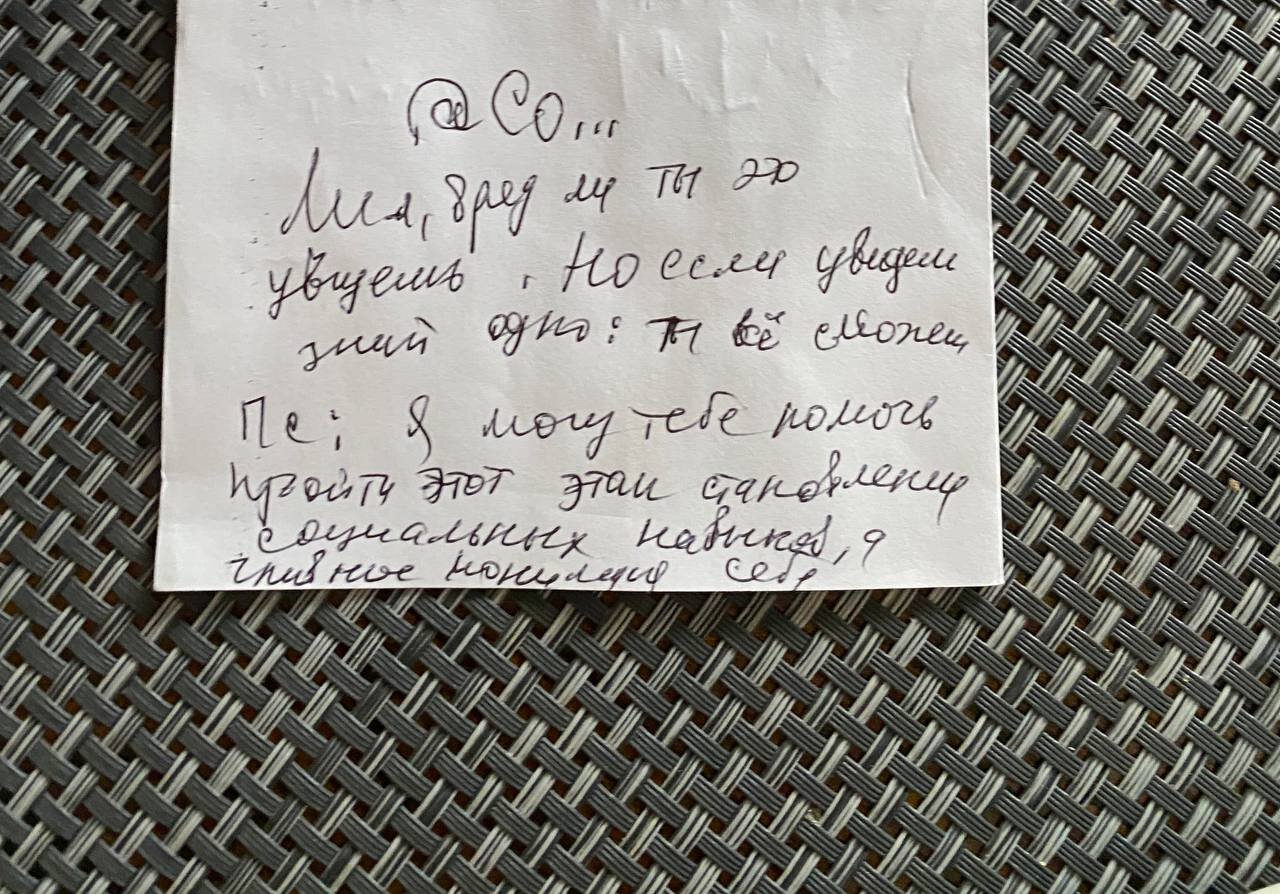 @ Со...
Лия, вряд ли ты это
увидешь. Но если увидеш
знай одно: ты всё сможеш
Пс: Я могу тебе помочь
пройти этот этап становления
социальных навыков, а
главное себя